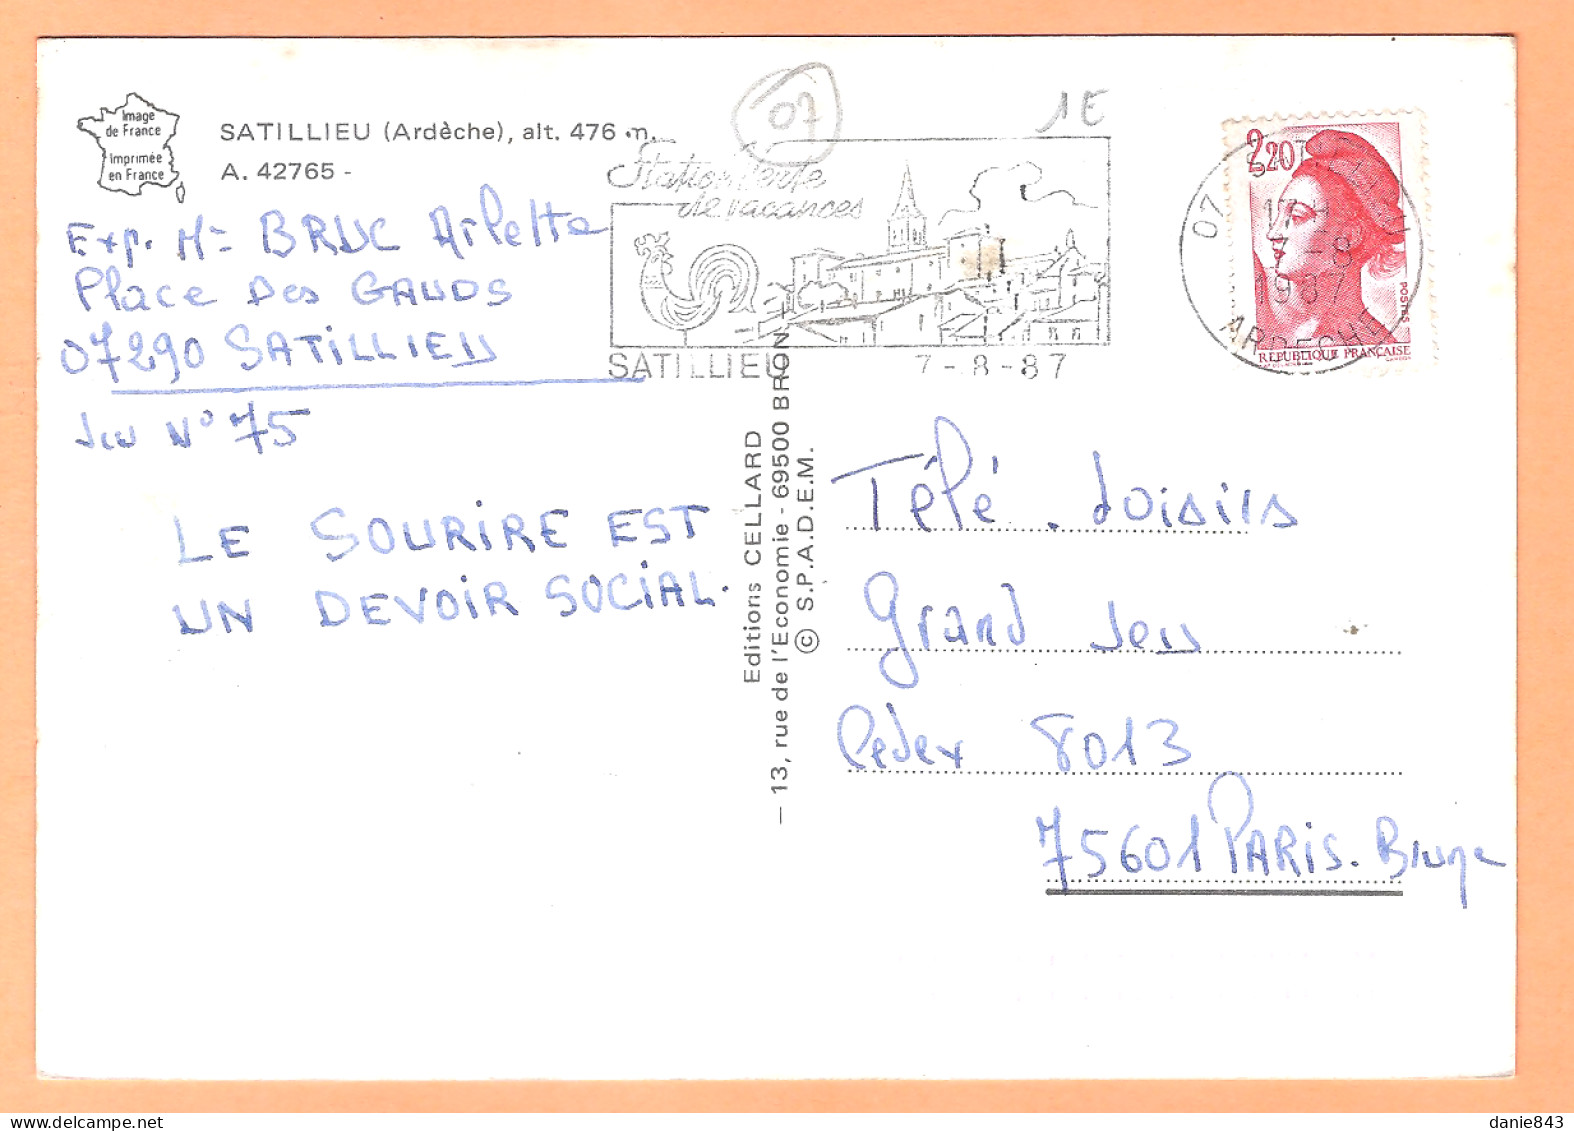 Image
de France
Imprimée
en France
SATILLIEU (Ardèche), alt. 476 m.
A. 42765 -
07
1E
Station Verte
de vacances
SATILLIEU 7-8-87
2,20
POSTES
REPUBLIQUE FRANÇAISE
07
17 H
7-8
1987
ARDECHE
Exp. Me BRUC Arlette
Place Des GAUDS
07290 SATILLIEU
Jeu N° 75
LE SOURIRE EST
UN DEVOIR SOCIAL.
Editions CELLARD
— 13, rue de l'Economie - 69500 BRON —
© S.P.A.D.E.M.
Télé. Loisirs
Grand Jeu
Cedex 8013
75601 PARIS. Brune
danie843